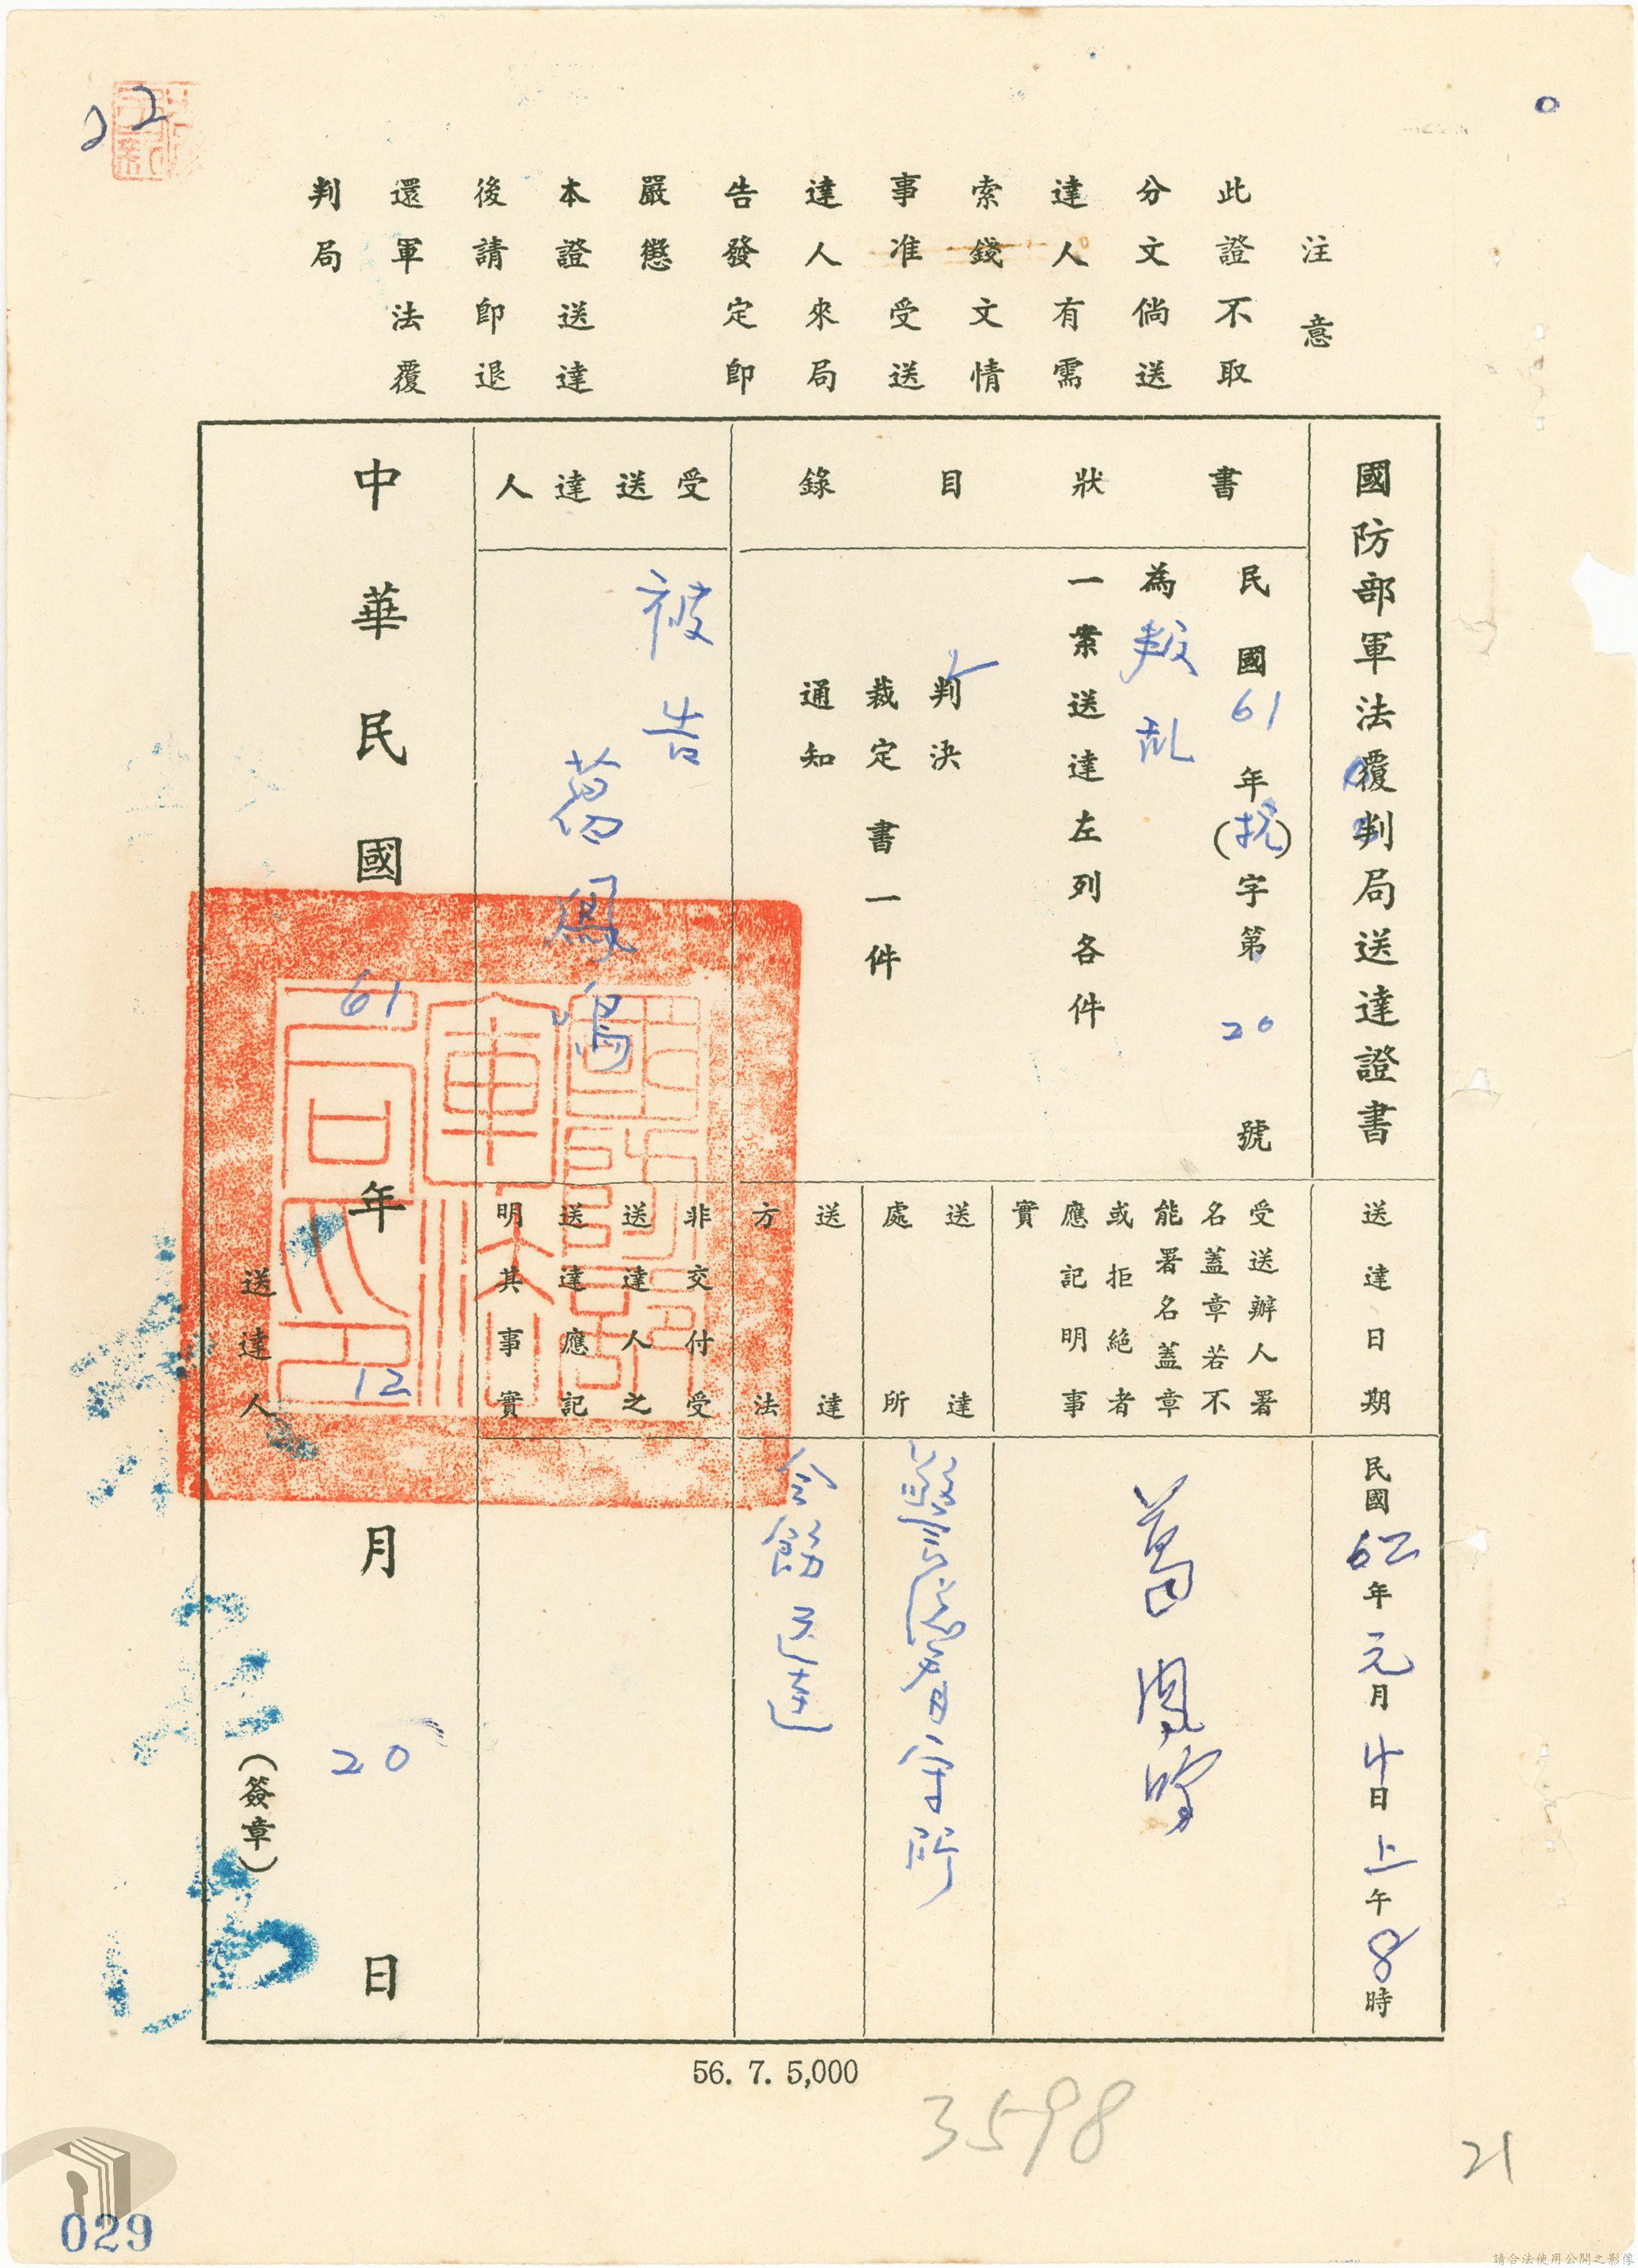 22
注意
此證不取
分文倘送
達人有需
索錢文情
事准受送
達人來局
告發定即
嚴懲
本證送達
後請即退
還軍法覆
判局
國防部軍法覆判局送達證書
書狀目錄
民國61年(抗)字第20號
為叛乱
一案送達左列各件
判決
裁定書一件
通知
受送達人
被告
葛鳳鳴
送達日期
民國62年元月廿日上午8時
受送辦人署
名蓋章若不
能署名蓋章
或拒絕者
應記明事
實
葛鳳鳴
送達
處所
看守所
送達
方法
令飭送達
非交付受
送達人之
送達應記
明其事實
中華民國61年12月20日
送達人
(簽章)
56. 7. 5,000
3598
21
029
請合法使用公開之影像